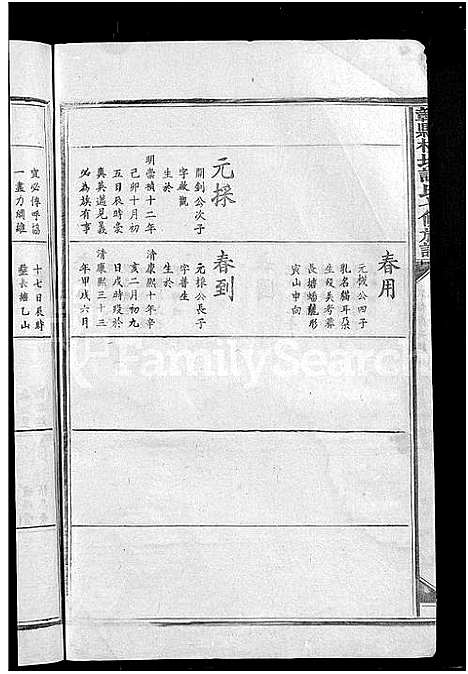 元採
開釗公次子
字敬觀
生於
明崇禎十二年
己卯十月初
五日辰時豪
爽英邁見義
必為族有事
宜必傳呼協
一盡力綢繆
春用
元機公四子
乳名貓耳朵
生歿失考葬
長塘蟠龍形
寅山申向
春到
元採公長子
字普生
生於
清康熙十年辛
亥二月初九
日戌時歿於
清康熙三十三
年甲戌六月
十七日辰時
葬長塘乙山
FamilySearch